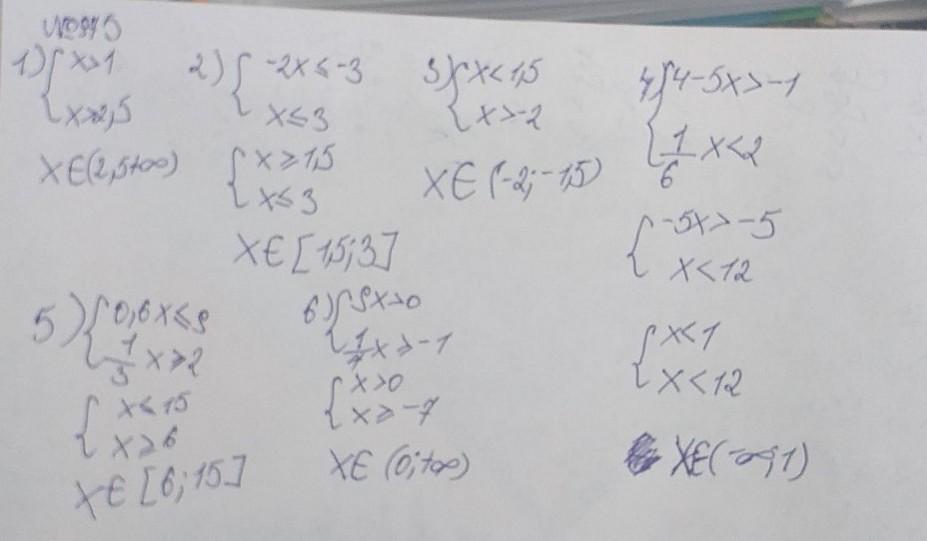 № 975
1) { x>1
x>2,5
x∈(2,5+∞)
2) { -2x ≤ -3
x ≤ 3
{ x ≥ 1,5
x ≤ 3
x∈[1,5;3]
3) { x < 1,5
x > -2
x∈(-2;-1,5)
4) { 4-5x > -1
1/6 x < 2
{ -5x > -5
x < 12
{ x < 1
x < 12
x∈(-∞;1)
5) { 0,6x ≤ 9
1/3 x ≥ 2
{ x ≤ 15
x ≥ 6
x∈[6;15]
6) { 9x > 0
1/7 x ≥ -1
{ x > 0
x ≥ -7
x∈(0;+∞)